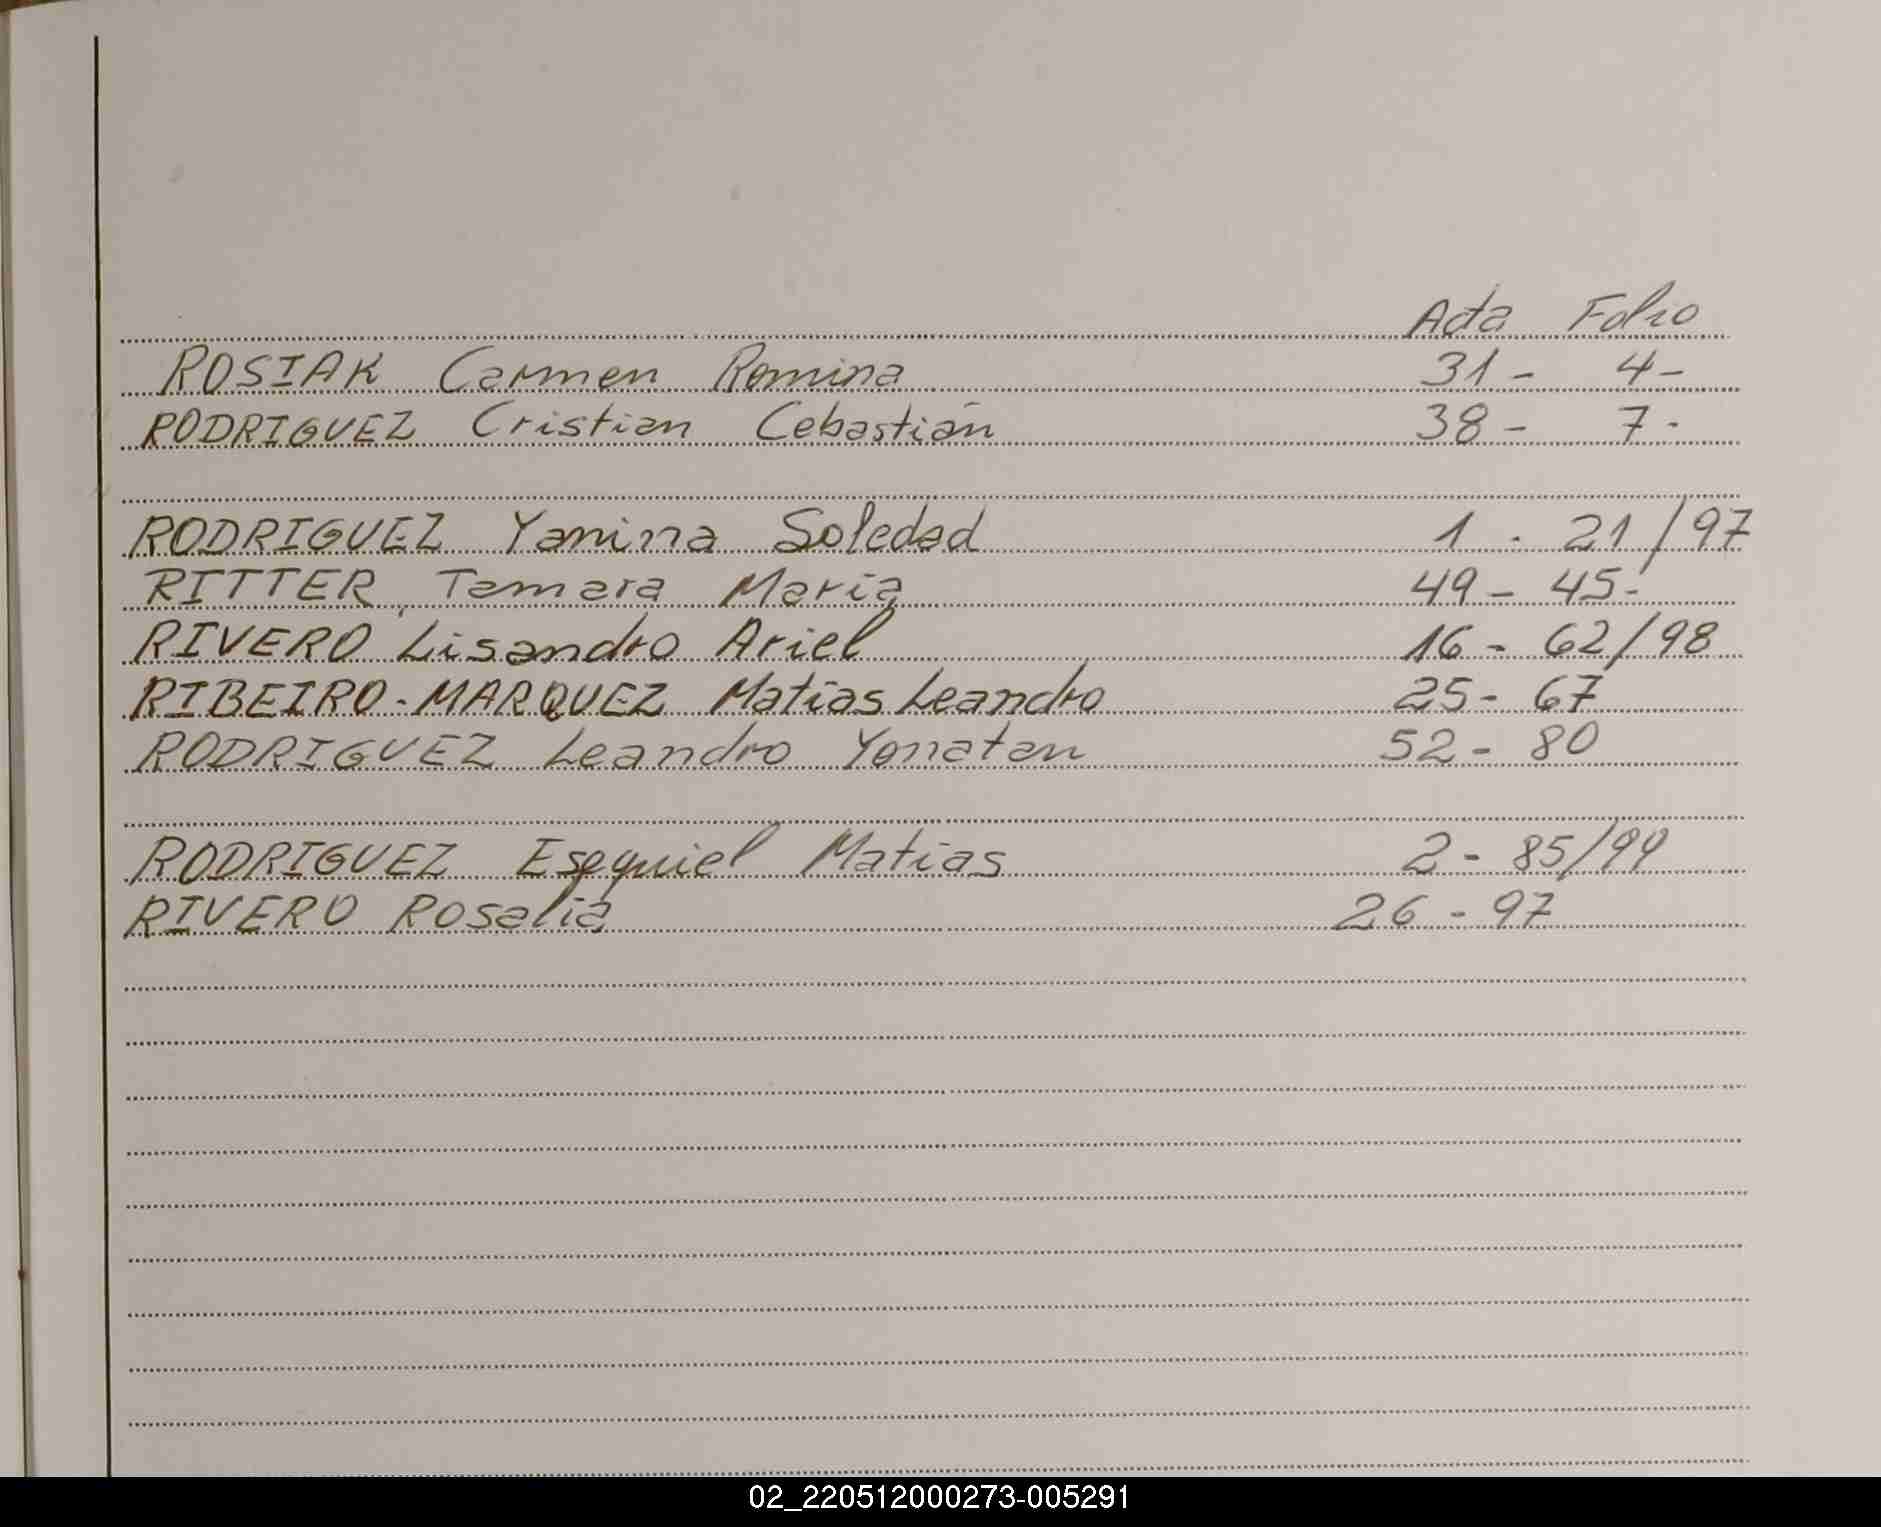 Acta Folio
ROSIAK Carmen Romina 31 - 4 -
RODRIGUEZ Cristian Cebastián 38 - 7 -
RODRIGUEZ Yanina Soledad 1 - 21/97
RITTER, Tamara María 49 - 45 -
RIVERO Lisandro Ariel 16 - 62/98
RIBEIRO-MARQUEZ Matias Leandro 25 - 67
RODRIGUEZ Leandro Yonatan 52 - 80
RODRIGUEZ Esequiel Matias 2 - 85/99
RIVERO Rosalia 26 - 97
02_220512000273-005291